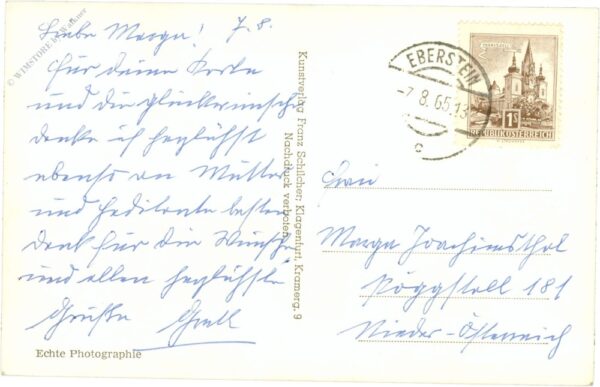 Liebe Marga! 7.8.
für deine Karte
und die Glückwünsche
danke ich herzlichst
ebenso an Mutter
und besten
Dank für die Wünsche
und allen herzlichste
Grüße
Echte Photographie
Kunstverlag Franz Schilcher, Klagenfurt, Kramerg. 9
Nachdruck verboten
EBERSTEIN
-7.8.65.13
c
1S
REPUBLIK ÖSTERREICH
Frau
Marga Joachimsthal
Pöggstall 181
Nieder-Österreich
© WIMSTORE